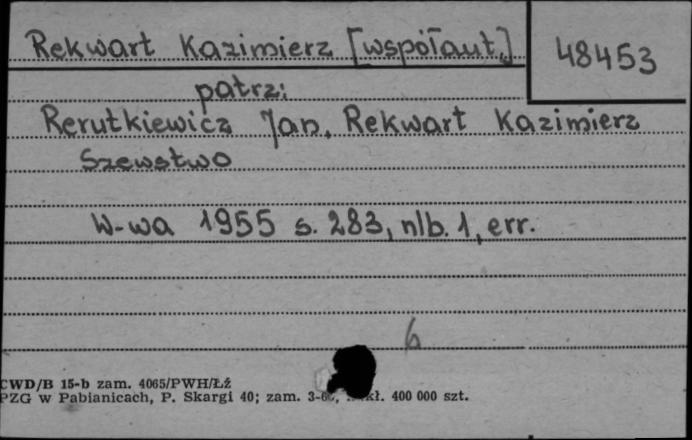 Rekwart Kazimierz [współaut.]
48453
patrz:
Rerutkiewicz Jan, Rekwart Kazimierz
Szewstwo
W-wa 1955 s. 283, nlb. 1, err.
6
CWD/B 15-b zam. 4065/PWH/Łź
PZG w Pabianicach, P. Skargi 40; zam. kł. 400 000 szt.